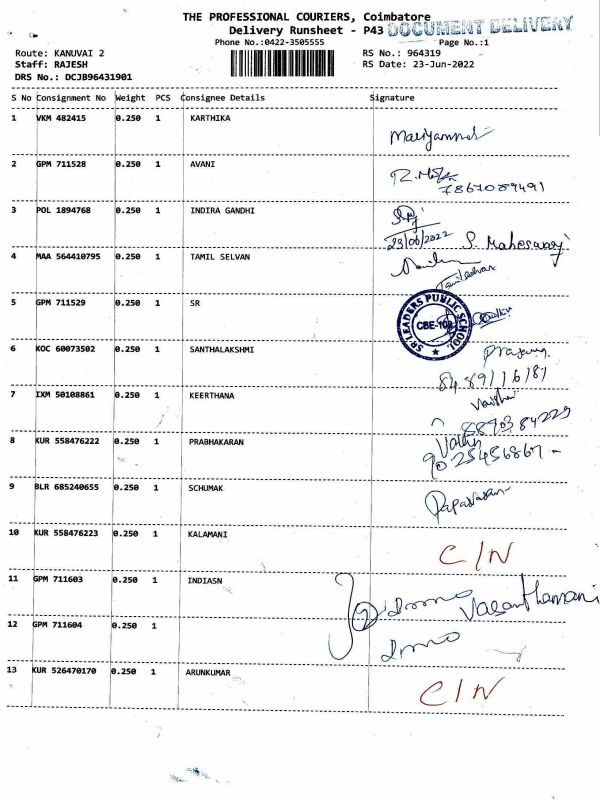 THE PROFESSIONAL COURIERS, Coimbatore
Delivery Runsheet - P43 DOCUMENT DELIVERY
Phone No.:0422-3505555 Page No.:1
Route: KANUVAI 2 RS No.: 964319
Staff: RAJESH RS Date: 23-Jun-2022
DRS No.: DCJB96431901
S No Consignment No Weight PCS Consignee Details Signature
1 VKM 482415 0.250 1 KARTHIKA
2 GPM 711528 0.250 1 AVANI
7867089491
3 POL 1894768 0.250 1 INDIRA GANDHI
23/06/2022 S. Maheswari
4 MAA 564410795 0.250 1 TAMIL SELVAN
5 GPM 711529 0.250 1 SR
SR LEADERS PUBLIC SCHOOL
6 KOC 60073502 0.250 1 SANTHALAKSHMI
8489116181
7 IXM 50108861 0.250 1 KEERTHANA
8870384229
8 KUR 558476222 0.250 1 PRABHAKARAN
9025456867
9 BLR 685240655 0.250 1 SCHUMAK
10 KUR 558476223 0.250 1 KALAMANI C/N
11 GPM 711603 0.250 1 INDIASN Vasanthamani
12 GPM 711604 0.250 1
13 KUR 526470170 0.250 1 ARUNKUMAR C/N